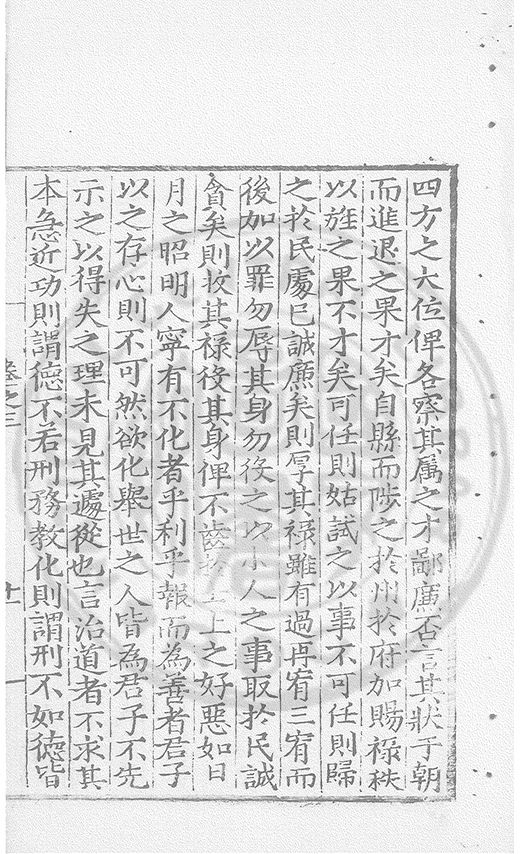 四方之大位俾各察其属之才鄙廉否言其狀于朝
而進退之果才矣自縣而陟之於州於府加賜禄秩
以旌之果不才矣可任則姑試之以事不可任則歸
之於民處已誠廉矣則厚其禄雖有過再宥三宥而
後加以罪勿辱其身勿役之以小人之事取於民誠
貪矣則收其禄役其身俾不齒於士上之好惡如日
月之昭明人寧有不化者乎利乎報而為善者君子
以之存心則不可然欲化舉世之人皆為君子不先
示之以得失之理未見其遽從也言治道者不求其
本急近功則謂德不若刑務教化則謂刑不如德皆
卷之三
十一